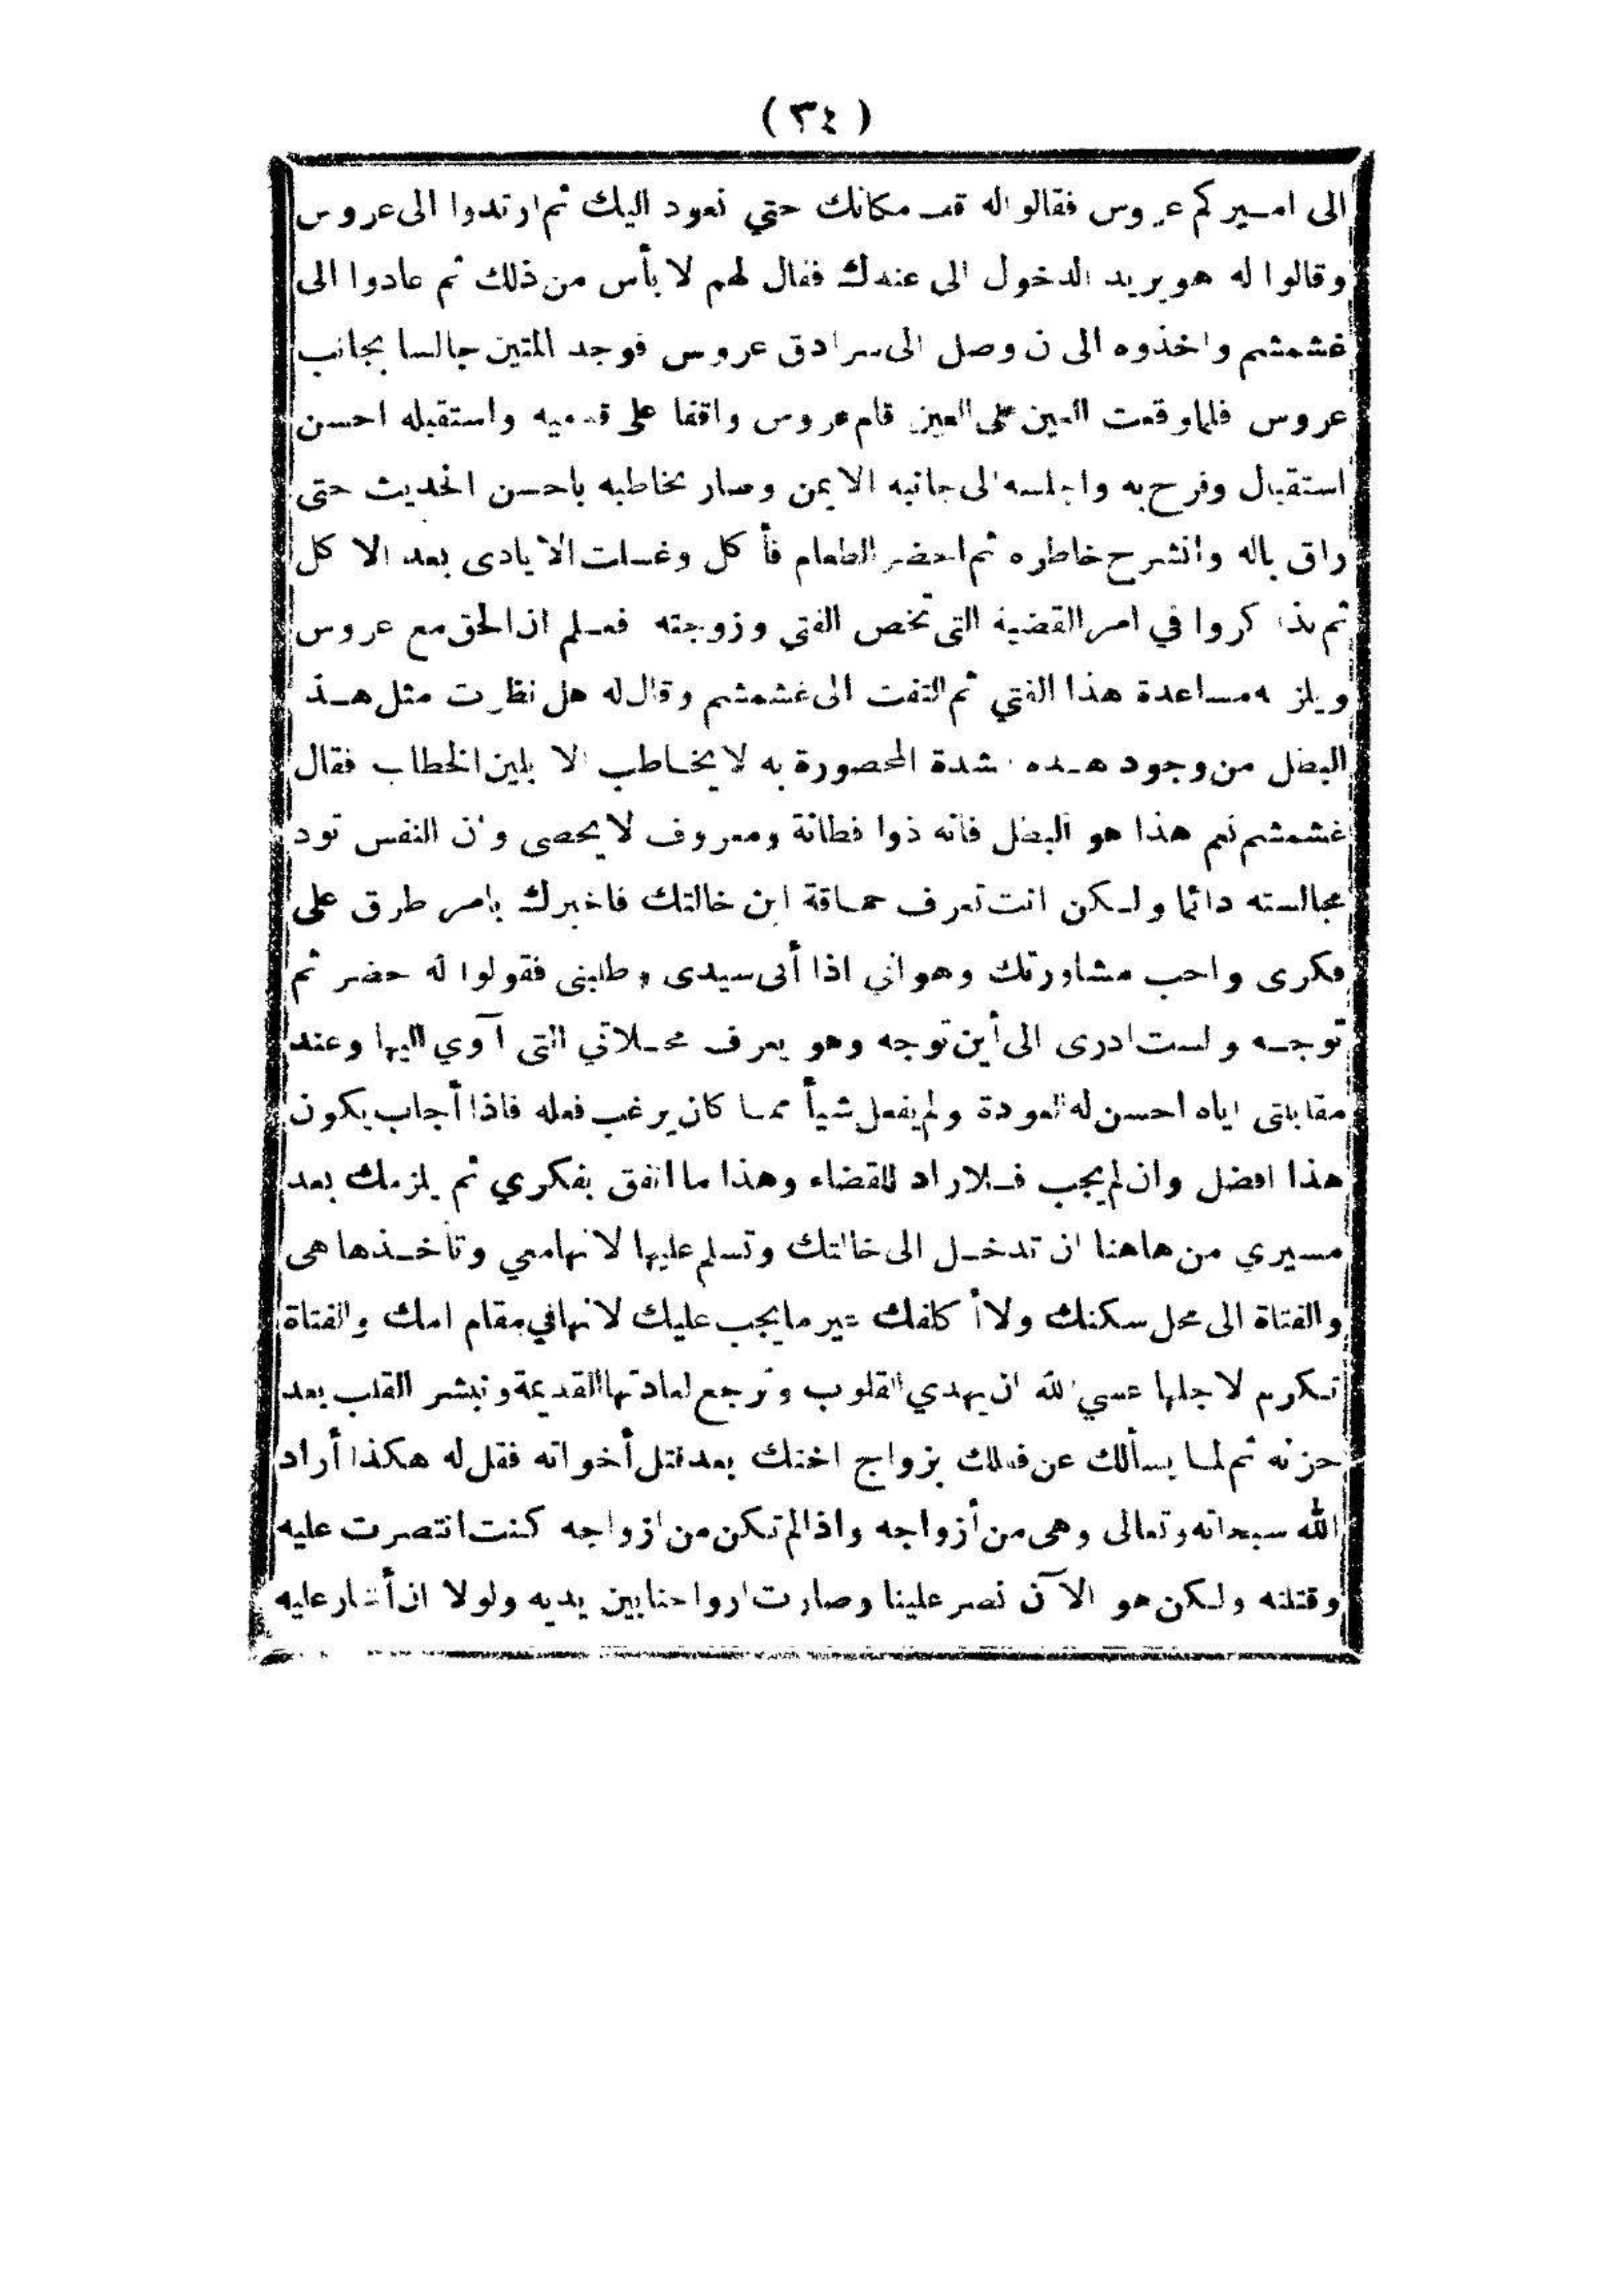 ( ٣٤ )
الى امـير كم عروس فقالوا له قف مكانك حتي نعود اليك ثم ارتدوا الى عروس
وقالوا له هو يريد الدخول الى عندك فقال لهم لا بأس من ذلك ثم عادوا الى
غشمشم واخذوه الى ن وصل الى سرادق عروس فوجد المتين جالسا بجانب
عروس فلما وقعت العين على العين قام عروس واقفا على قدميه واستقبله احسن
استقبال وفرح به واجلسه الى جانبه الايمن وصار يخاطبه باحسن الحديث حتى
راق باله وانشرح خاطره ثم احضر الطعام فأكل وغسلت الايادى بعد الاكل
ثم تذاكروا في امر القضية التى تخص الفتي وزوجته فعـلم ان الحق مع عروس
ويلزمه مساعدة هذا الفتي ثم التفت الى غشمشم وقال له هل نظرت مثل هـذ
البطل من وجود هـذه شدة المحصورة به لا يخـاطب الا بلين الخطاب فقال
غشمشم نعم هذا هو البطل فانه ذوا فطانة ومعروف لا يحصى وان النفس تود
مجالسته دائما ولـكن انت تعرف حمـاقة ابن خالتك فاخبرك بامر طرق على
فكرى واحب مشاورتك وهو اني اذا أتى سيدى وطلبنى فقولوا له حضر ثم
توجـه ولست ادرى الى أين توجه وهو يعرف محـلاتي التى آوي اليها وعند
مقابلتى اياه احسن له العودة ولم يفعل شيأ ممـا كان يرغب فعله فاذا أجاب يكون
هذا افضل وان لم يجب فـلا راد للقضاء وهذا ما اتفق بفكري ثم يلزمك بعد
مسيري من هاهنا ان تدخـل الى خالتك وتسلم عليها لانها معي وتأخـذها هى
والفتاة الى محل سكنك ولا أكلفك غير ما يجب عليك لانها في مقام امك والفتاة
تـكرم لاجلها عسي الله ان يهدي القلوب وترجع لعادتها القديمة وتبشر القلب بعد
حزنه ثم لمـا يسألك عن فعلك بزواج اختك بعد قتل أخواته فقل له هكذا أراد
الله سبحانه وتعالى وهى من أزواجه واذا لم تـكن من ازواجه كنت انتصرت عليه
وقتلته ولـكن هو الآن نصر علينا وصارت ارواحنا بين يديه ولولا ان أشار عليه